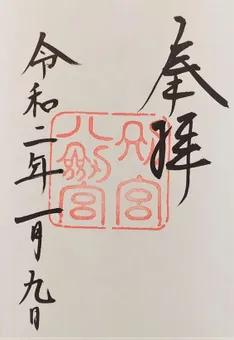 奉拝
別宮
八剣宮
令和二年一月九日